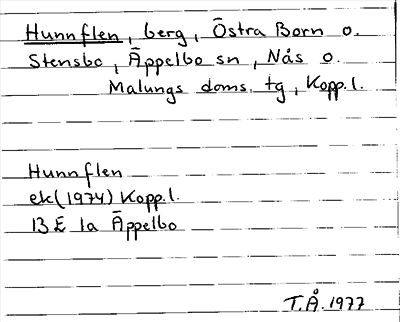 Hunnflen, berg, Östra Born o.
Stensbo, Äppelbo sn, Nås o.
Malungs doms. tg, Kopp. l.
Hunnflen
ek (1974) Kopp. l.
13 E 1a Äppelbo
T.Å. 1977